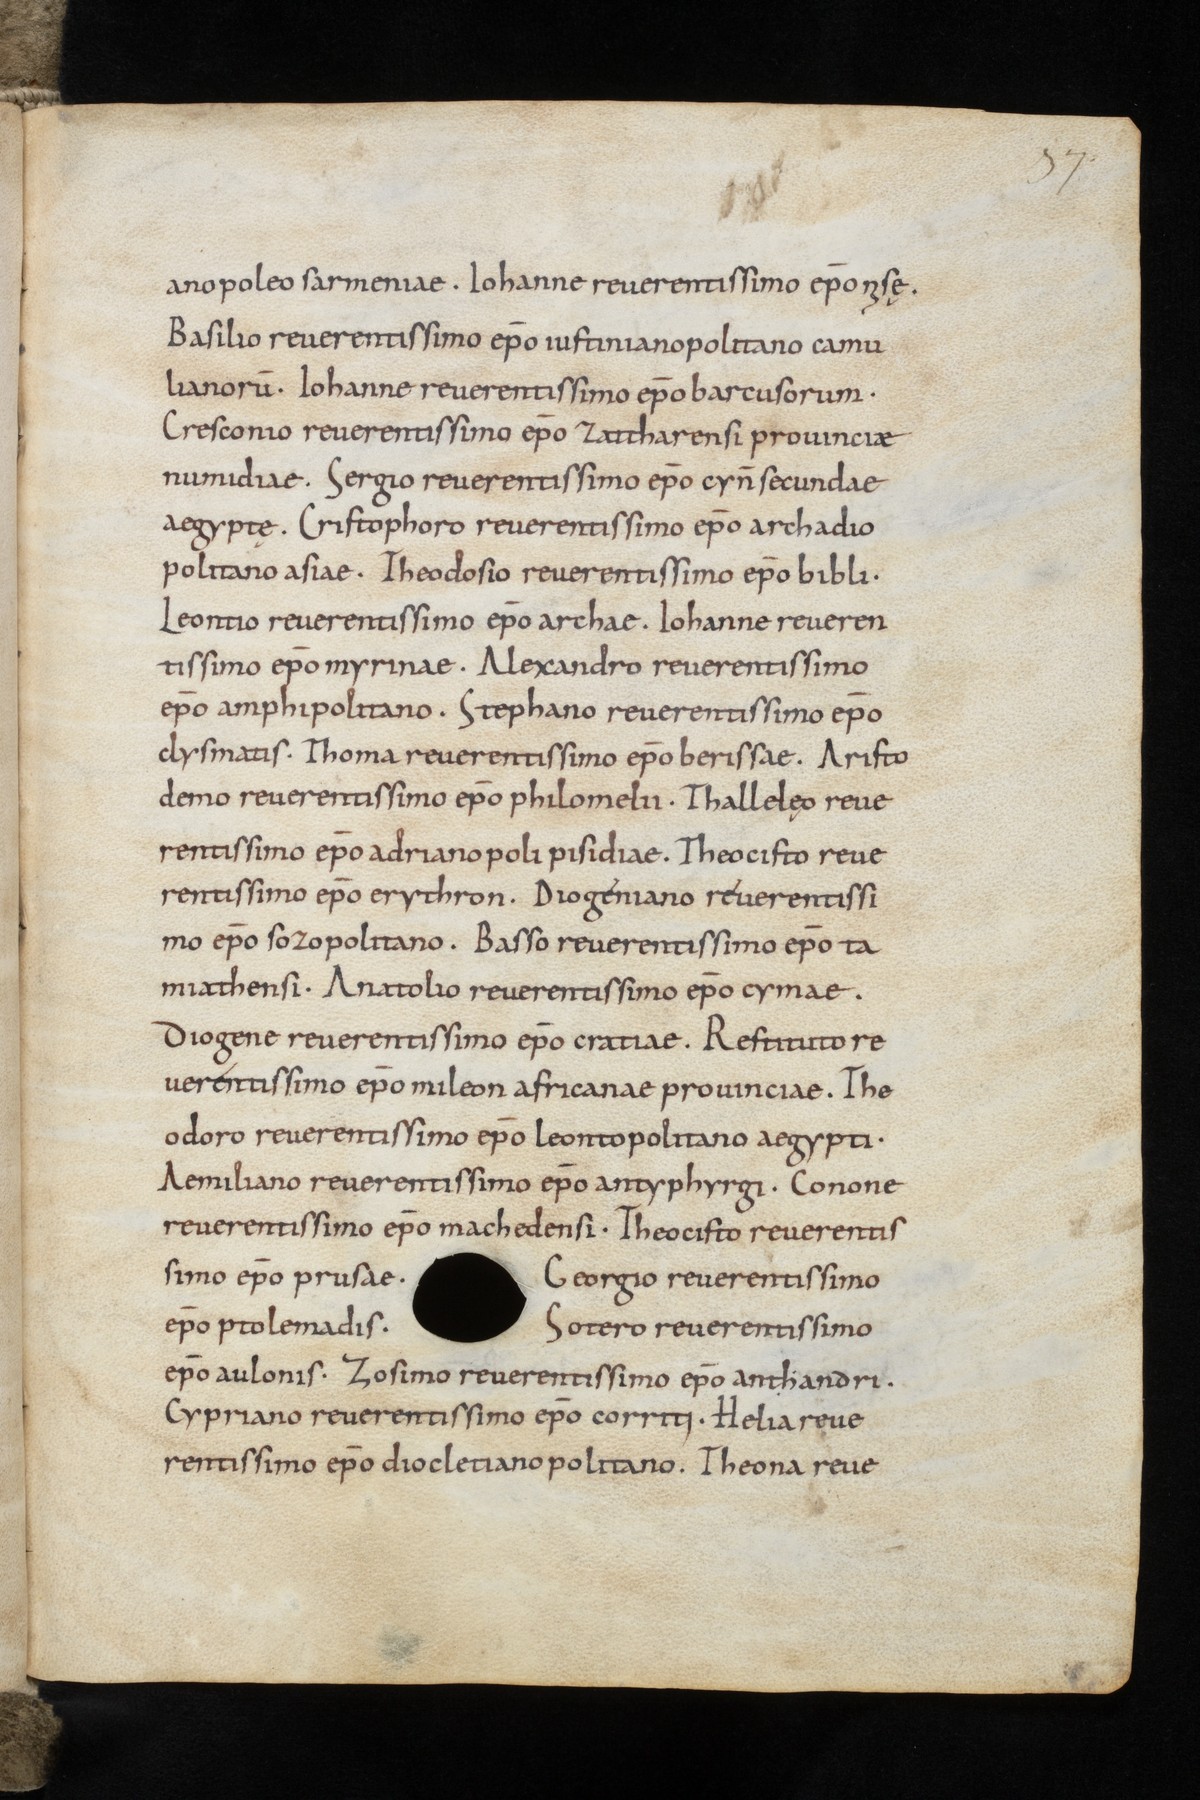 57
anopoleo sarmeniae. Iohanne reuerentissimo ep̄o nȝsę.
Basilio reuerentissimo ep̄o iustinianopolitano camu
lianorū. Iohanne reuerentissimo ep̄o barcusorum.
Cresconio reuerentissimo ep̄o zattharensi prouinciæ
numidiae. Sergio reuerentissimo ep̄o cyn̄ secundae
aegyptę. Cristophoro reuerentissimo ep̄o archadio
politano asiae. Theodosio reuerentissimo ep̄o bibli.
Leontio reuerentissimo ep̄o archae. Iohanne reueren
tissimo ep̄o myrinae. Alexandro reuerentissimo
ep̄o amphipolitano. Stephano reuerentissimo ep̄o
clysmatis. Thoma reuerentissimo ep̄o berissae. Aristo
demo reuerentissimo ep̄o philomelii. Thallelęo reue
rentissimo ep̄o adrianopoli pisidiae. Theocisto reue
rentissimo ep̄o erythron. Diogeniano reuerentissi
mo ep̄o sozopolitano. Basso reuerentissimo ep̄o ta
miathensi. Anatolio reuerentissimo ep̄o cymae.
Diogene reuerentissimo ep̄o cratiae. Restituto re
uerentissimo ep̄o mileon africanae prouinciae. The
odoro reuerentissimo ep̄o leontopolitano aegypti.
Aemiliano reuerentissimo ep̄o antyphyrgi. Conone
reuerentissimo ep̄o machedensi. Theocisto reuerentis
simo ep̄o prusae. Georgio reuerentissimo
ep̄o ptolemadis. Sotero reuerentissimo
ep̄o aulonis. Zosimo reuerentissimo ep̄o anthandri.
Cypriano reuerentissimo ep̄o corriti. Helia reue
rentissimo ep̄o diocletianopolitano. Theona reue